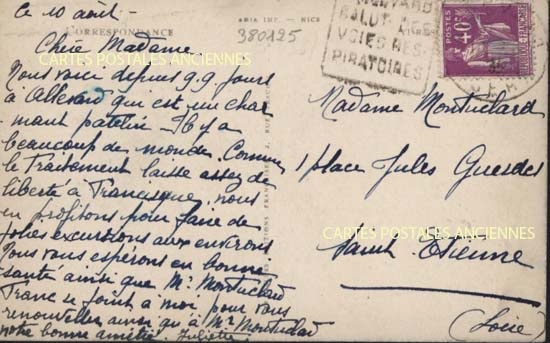 Ce 10 août
ARIA IMP. - NICE
CORRESPONDANCE
380125
Chère Madame.
CARTES POSTALES ANCIENNES
Nous voici depuis qq jours
à Allevard qui est un char
mant patelin. Il y a
beaucoup de monde. Comme
le Traitement laisse assez de
liberté à Francisque, nous
en profitons pour faire de
jolies excursions aux environs
Nous vous espérons en bonne
santé ainsi que Mr Montuclard
Franc se joint à moi pour vous
renouveller ainsi qu'à Mr Montuclard
notre bonne amitié. Juliette
ALLEVARD
SALUT DES
VOIES RES-
PIRATOIRES
POSTES
40c
Madame Montuclard
1 place Jules Guesdes
CARTES POSTALES ANCIENNES
Saint Etienne
(Loire)